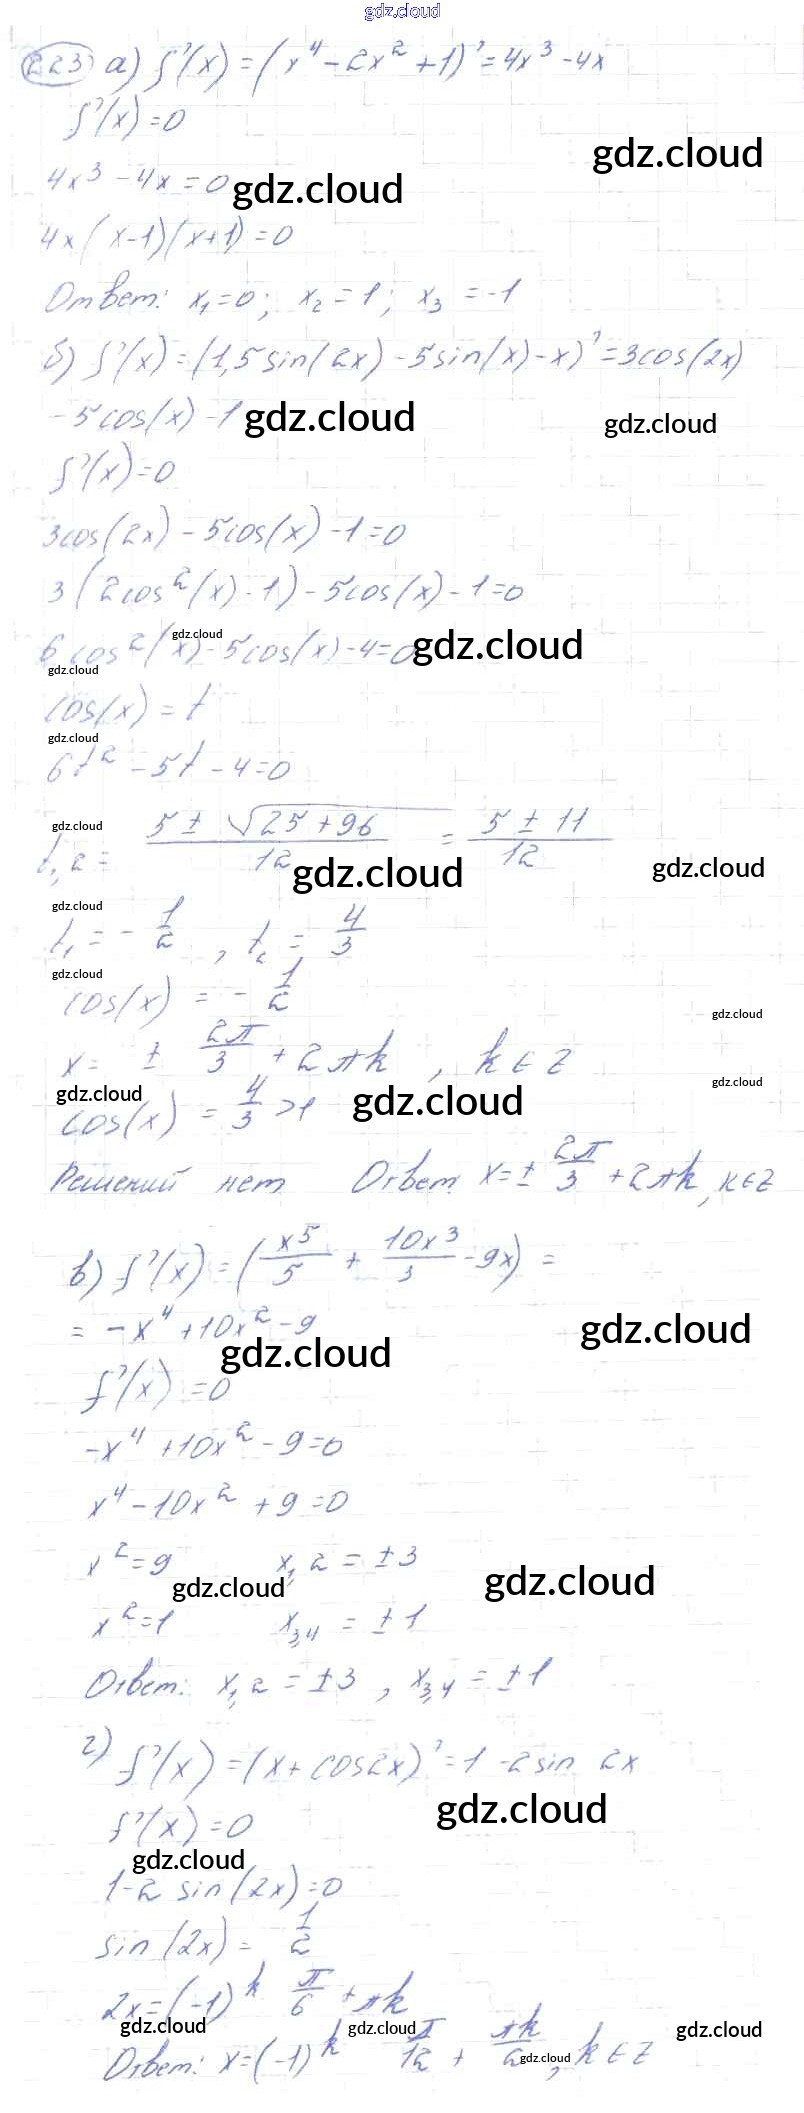 gdz.cloud
223 а) f'(x) = (x⁴ - 2x² + 1)' = 4x³ - 4x
f'(x) = 0
gdz.cloud
4x³ - 4x = 0 gdz.cloud
4x(x-1)(x+1) = 0
Ответ: x₁=0; x₂=1; x₃=-1
б) f'(x) = (1,5sin(2x) - 5sin(x) - x)' = 3cos(2x)
- 5cos(x) - 1 gdz.cloud gdz.cloud
f'(x) = 0
3cos(2x) - 5cos(x) - 1 = 0
3(2cos²(x) - 1) - 5cos(x) - 1 = 0
gdz.cloud
6cos²(x) - 5cos(x) - 4 = 0 gdz.cloud
gdz.cloud
cos(x) = t
gdz.cloud
6t² - 5t - 4 = 0
gdz.cloud
t₁,₂ = (5 ± √(25+96))/12 = (5 ± 11)/12
gdz.cloud gdz.cloud
gdz.cloud
t₁ = -1/2, t₂ = 4/3
gdz.cloud
cos(x) = -1/2
gdz.cloud
x = ± 2π/3 + 2πk, k∈Z
gdz.cloud
gdz.cloud gdz.cloud
cos(x) = 4/3 > 1
Решений нет Ответ x = ± 2π/3 + 2πk, k∈Z
в) f'(x) = (x⁵/5 + 10x³/3 - 9x) =
= -x⁴ + 10x² - 9 gdz.cloud
gdz.cloud
f'(x) = 0
-x⁴ + 10x² - 9 = 0
x⁴ - 10x² + 9 = 0
x² = 9 x₁,₂ = ±3
gdz.cloud gdz.cloud
x² = 1 x₃,₄ = ±1
Ответ: x₁,₂ = ±3, x₃,₄ = ±1
г) f'(x) = (x + cos2x)' = 1 - 2sin 2x
f'(x) = 0 gdz.cloud
gdz.cloud
1 - 2 sin(2x) = 0
sin(2x) = 1/2
2x = (-1)^k π/6 + πk
gdz.cloud gdz.cloud gdz.cloud
Ответ: x = (-1)^k π/12 + πk/2, k∈Z
gdz.cloud